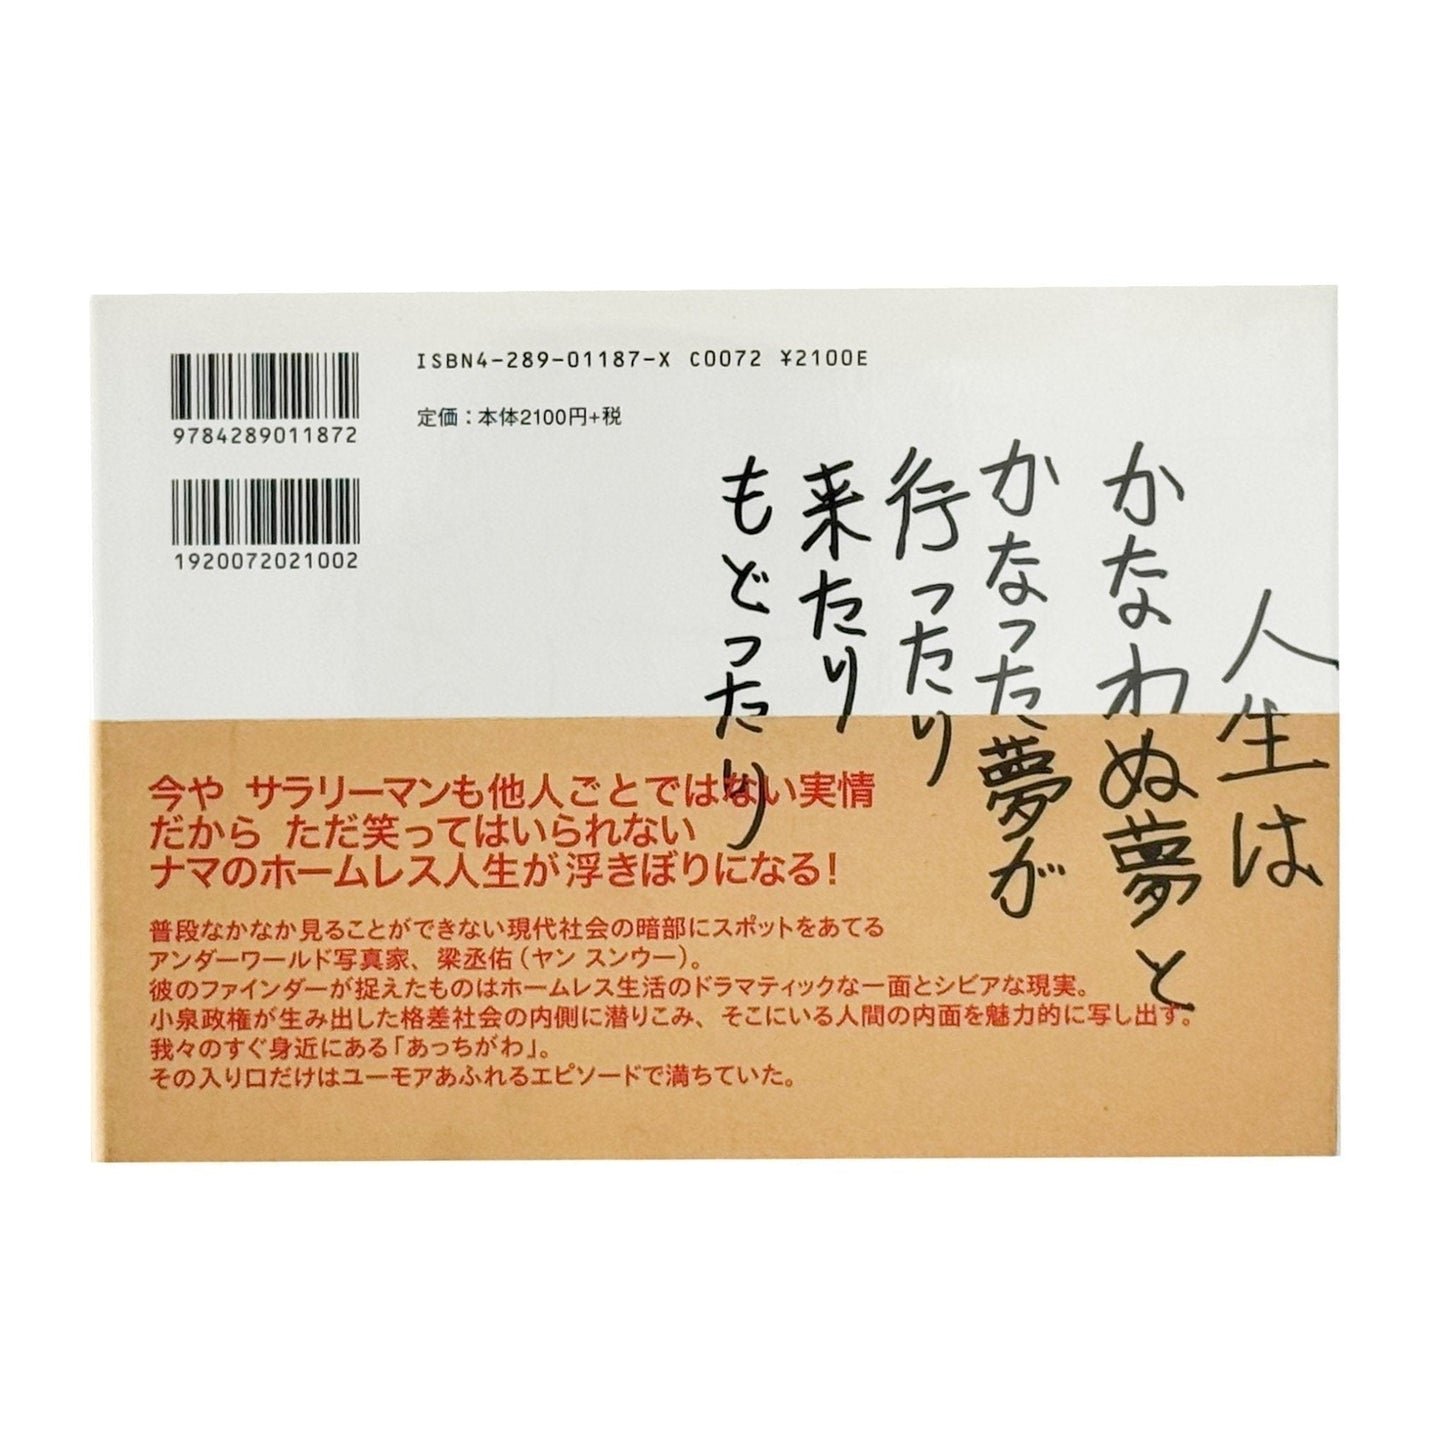 ISBN4-289-01187-X C0072 ¥2100E
定価：本体2100円+税
9784289011872
1920072021002
人生は
かなわぬ夢と
かなった夢が
行ったり
来たり
もどったり
今や サラリーマンも他人ごとではない実情
だから ただ笑ってはいられない
ナマのホームレス人生が浮きぼりになる！
普段なかなか見ることができない現代社会の暗部にスポットをあてる
アンダーワールド写真家、梁丞佑（ヤン スンウー）。
彼のファインダーが捉えたものはホームレス生活のドラマティックな一面とシビアな現実。
小泉政権が生み出した格差社会の内側に潜りこみ、そこにいる人間の内面を魅力的に写し出す。
我々のすぐ身近にある「あっちがわ」。
その入り口だけはユーモアあふれるエピソードで満ちていた。